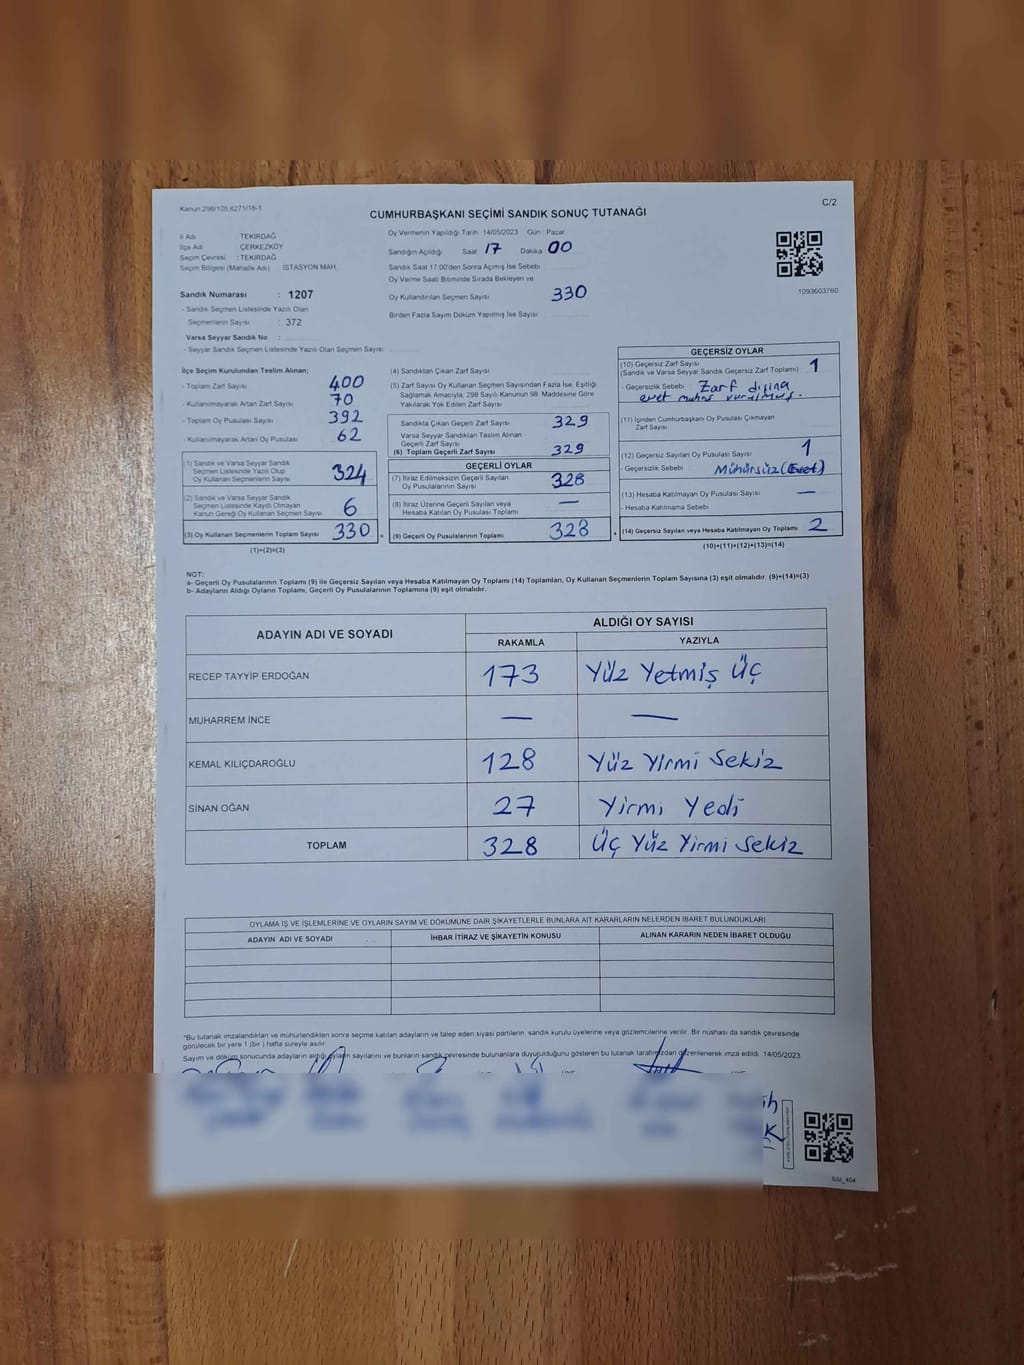 Kanun:298/105;6271/18-1
C/2
CUMHURBAŞKANI SEÇİMİ SANDIK SONUÇ TUTANAĞI
İl Adı TEKİRDAĞ
İlçe Adı ÇERKEZKÖY
Seçim Çevresi : TEKİRDAĞ
Seçim Bölgesi (Mahalle Adı) İSTASYON MAH.
Sandık Numarası : 1207
- Sandık Seçmen Listesinde Yazılı Olan
Seçmenlerin Sayısı : 372
Varsa Seyyar Sandık No :
- Seyyar Sandık Seçmen Listesinde Yazılı Olan Seçmen Sayısı:
Oy Vermenin Yapıldığı Tarih 14/05/2023 Gün : Pazar
Sandığın Açıldığı Saat 17 Dakika 00
Sandık Saat 17:00'den Sonra Açımış İse Sebebi
Oy Verme Saati Bitiminde Sırada Bekleyen ve
Oy Kullandırılan Seçmen Sayısı 330
Birden Fazla Sayım Döküm Yapılmış İse Sayısı
1093603760
İlçe Seçim Kurulundan Teslim Alınan;
- Toplam Zarf Sayısı 400
- Kullanılmayarak Artan Zarf Sayısı 70
- Toplam Oy Pusulası Sayısı 392
- Kullanılmayarak Artan Oy Pusulası 62
(1) Sandık ve Varsa Seyyar Sandık
Seçmen Listesinde Yazılı Olup
Oy Kullanan Seçmenlerin Sayısı 324
(2) Sandık ve Varsa Seyyar Sandık
Seçmen Listesinde Kaydı Olmayan
Kanun Gereği Oy Kullanan Seçmen Sayısı 6
(3) Oy Kullanan Seçmenlerin Toplam Sayısı 330 =
(1)+(2)=(3)
(4) Sandıktan Çıkan Zarf Sayısı
(5) Zarf Sayısı Oy Kullanan Seçmen Sayısından Fazla İse, Eşitliği
Sağlamak Amacıyla; 298 Sayılı Kanunun 98. Maddesine Göre
Yakılarak Yok Edilen Zarf Sayısı
Sandıkta Çıkan Geçerli Zarf Sayısı 329
Varsa Seyyar Sandıktan Teslim Alınan
Geçerli Zarf Sayısı
(6) Toplam Geçerli Zarf Sayısı 329
GEÇERLİ OYLAR
(7) İtiraz Edilmeksizin Geçerli Sayılan
Oy Pusulalarının Sayısı 328
(8) İtiraz Üzerine Geçerli Sayılan veya
Hesaba Katılan Oy Pusulası Toplamı —
(9) Geçerli Oy Pusulalarının Toplamı 328 +
GEÇERSİZ OYLAR
(10) Geçersiz Zarf Sayısı 1
(Sandık ve Varsa Seyyar Sandık Geçersiz Zarf Toplamı)
- Geçersizlik Sebebi : Zarf dışına
evet muhru vurulmuş.
(11) İçinden Cumhurbaşkanı Oy Pusulası Çıkmayan
Zarf Sayısı
(12) Geçersiz Sayılan Oy Pusulası Sayısı 1
- Geçersizlik Sebebi : Mühürsüz (Evet)
(13) Hesaba Katılmayan Oy Pusulası Sayısı —
- Hesaba Katılmama Sebebi :
(14) Geçersiz Sayılan veya Hesaba Katılmayan Oy Toplamı 2
(10)+(11)+(12)+(13)=(14)
NOT:
a- Geçerli Oy Pusulalarının Toplamı (9) ile Geçersiz Sayılan veya Hesaba Katılmayan Oy Toplamı (14) Toplamları, Oy Kullanan Seçmenlerin Toplam Sayısına (3) eşit olmalıdır. (9)+(14)=(3)
b- Adayların Aldığı Oyların Toplamı, Geçerli Oy Pusulalarının Toplamına (9) eşit olmalıdır.
ADAYIN ADI VE SOYADI ALDIĞI OY SAYISI
RAKAMLA YAZIYLA
RECEP TAYYİP ERDOĞAN 173 Yüz Yetmiş Üç
MUHARREM İNCE — —
KEMAL KILIÇDAROĞLU 128 Yüz Yirmi Sekiz
SİNAN OĞAN 27 Yirmi Yedi
TOPLAM 328 Üç Yüz Yirmi Sekiz
OYLAMA İŞ VE İŞLEMLERİNE VE OYLARIN SAYIM VE DÖKÜMÜNE DAİR ŞİKAYETLERLE BUNLARA AİT KARARLARIN NELERDEN İBARET BULUNDUKLARI
ADAYIN ADI VE SOYADI İHBAR İTİRAZ VE ŞİKAYETİN KONUSU ALINAN KARARIN NEDEN İBARET OLDUĞU
*Bu tutanak imzalandıktan ve mühürlendikten sonra seçime katılan adayların ve talep eden siyasi partilerin sandık kurulu üyelerine veya gözlemcilerine verilir. Bir nüshası da sandık çevresinde
görülecek bir yere 1 (bir ) hafta süreyle asılır.
Sayım ve döküm sonucunda adayların aldığı oyların sayılarını ve bunların sandık çevresinde bulunanlara duyurulduğunu gösteren bu tutanak tarafımızdan düzenlenerek imza edildi. 14/05/2023
SGİ_404